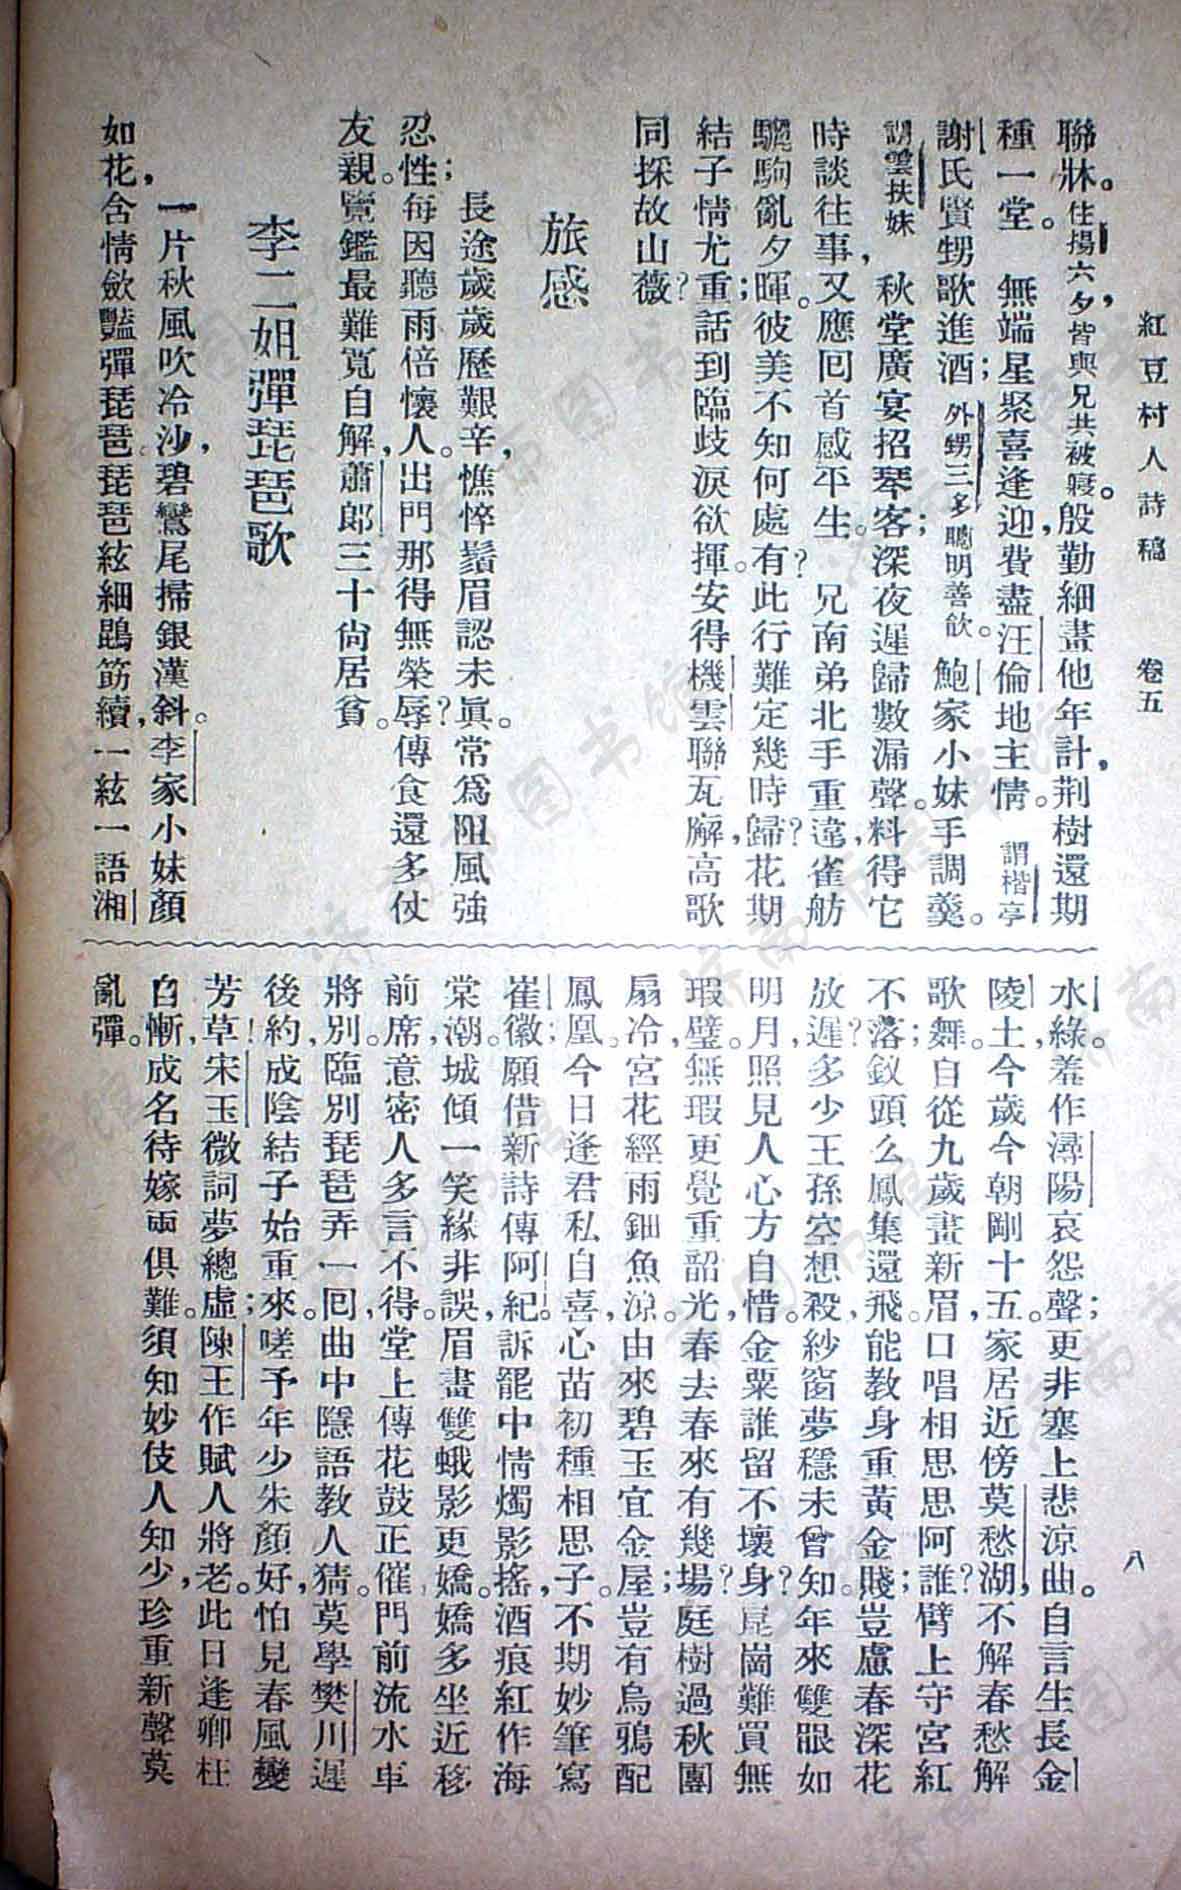 紅豆村人詩稿　卷五　八
聯牀。住揚六夕，皆與兄共被寢。殷勤細畫他年計，荆樹還期
種一堂。　無端星聚喜逢迎，費盡汪倫地主情。謂楷亭
謝氏賢甥歌進酒；外甥三多聰明善飲。鮑家小妹手調羹。
謂雲扶妹　秋堂廣宴招琴客；深夜遲歸數漏聲。料得它
時談往事，又應回首感平生。　兄南弟北手重違，雀舫
驪駒亂夕暉。彼美不知何處有？此行難定幾時歸？花期
結子情尤重；話到臨歧淚欲揮。安得機雲聯瓦廨，高歌
同採故山薇？
旅感
長途歲歲歷艱辛，憔悴鬚眉認未眞。常爲阻風強
忍性；每因聽雨倍懷人。出門那得無榮辱？傳食還多仗
友親。覽鑑最難寬自解，蕭郎三十尙居貧。
李二姐彈琵琶歌
一片秋風吹冷沙，碧鸞尾掃銀漢斜。李家小妹顏
如花，含情斂豔彈琵琶。琵琶絃細鵾筋續，一絃一語湘
水綠。羞作潯陽哀怨聲；更非塞上悲涼曲。自言生長金
陵土，今歲今朝剛十五。家居近傍莫愁湖，不解春愁解
歌舞。自從九歲畫新眉，口唱相思思阿誰？臂上守宮紅
不落，釵頭么鳳集還飛。能教身重黃金賤；豈慮春深花
放遲？多少王孫空想殺，紗窗夢穩未曾知。年來雙眼如
明月，照見人心方自惜，金粟誰留不壞身？崑崗難買無
瑕璧。無瑕更覺重韶光，春去春來有幾場？庭樹過秋團
扇冷，宮花經雨鈿魚涼。由來碧玉宜金屋；豈有烏鴉配
鳳凰。今日逢君私自喜，心苗初種相思子。不期妙筆寫
崔徽；願借新詩傳阿紀。訴罷中情燭影搖，酒痕紅作海
棠潮。城傾一笑緣非誤，眉畫雙蛾影更嬌。嬌多坐近移
前席，意密人多言不得。堂上傳花鼓正催，門前流水車
將別。臨別琵琶弄一回，曲中隱語教人猜。莫學樊川遲
後約，成陰結子始重來。嗟予年少朱顏好，怕見春風變
芳草！宋玉微詞夢總虛；陳王作賦人將老。此日逢卿枉
自慚，成名待嫁兩俱難。須知妙伎人知少，珍重新聲莫
亂彈。